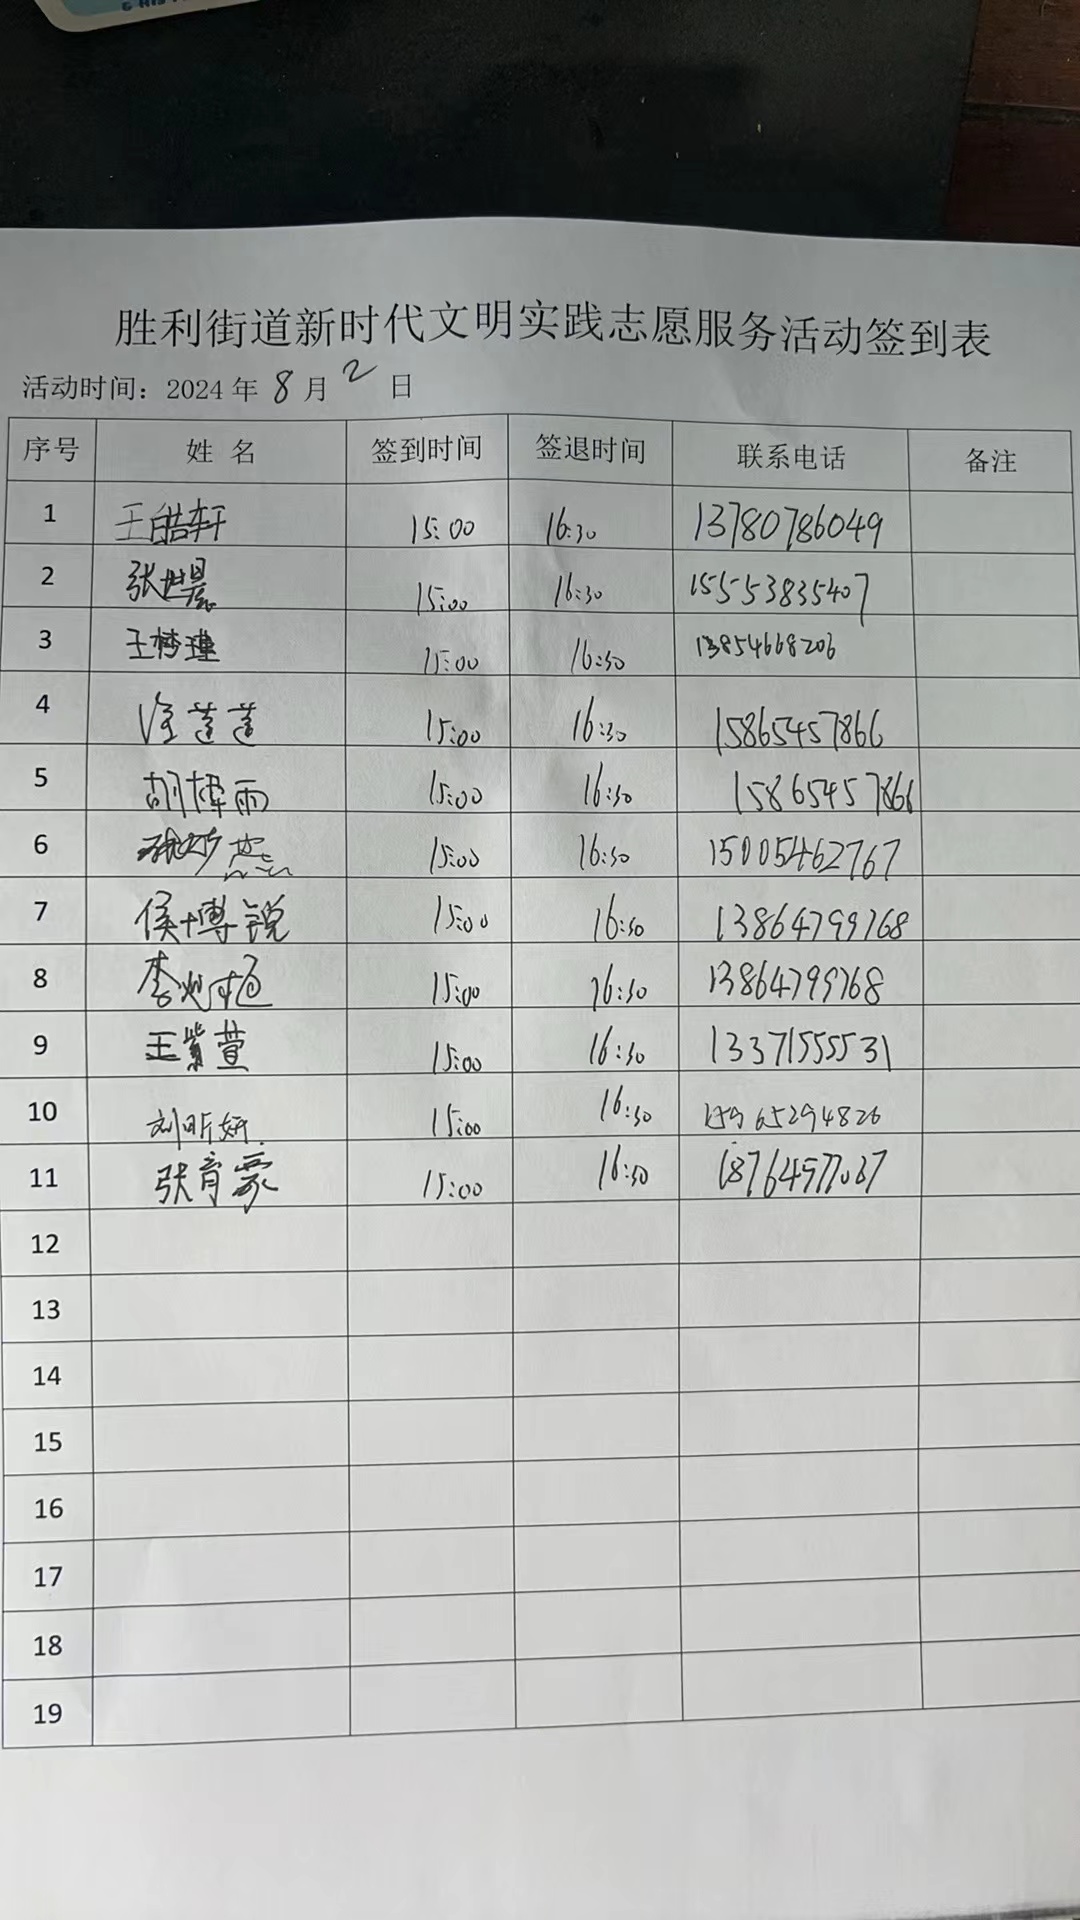 胜利街道新时代文明实践志愿服务活动签到表
活动时间：2024 年 8 月 2 日
序号 姓 名 签到时间 签退时间 联系电话 备注
1 王皓轩 15:00 16:30 13780786049
2 张世晨 15:00 16:30 15553835407
3 王梓瑾 15:00 16:30 13854668206
4 徐莲莲 15:00 16:30 15865457866
5 胡梓雨 15:00 16:30 15865457866
6 15:00 16:30 15005462767
7 侯博锐 15:00 16:30 13864799768
8 15:00 16:30 13864799768
9 王紫萱 15:00 16:30 13371555531
10 刘昕妍 15:00 16:30 15965294826
11 张育蒙 15:00 16:30 18764577037
12
13
14
15
16
17
18
19